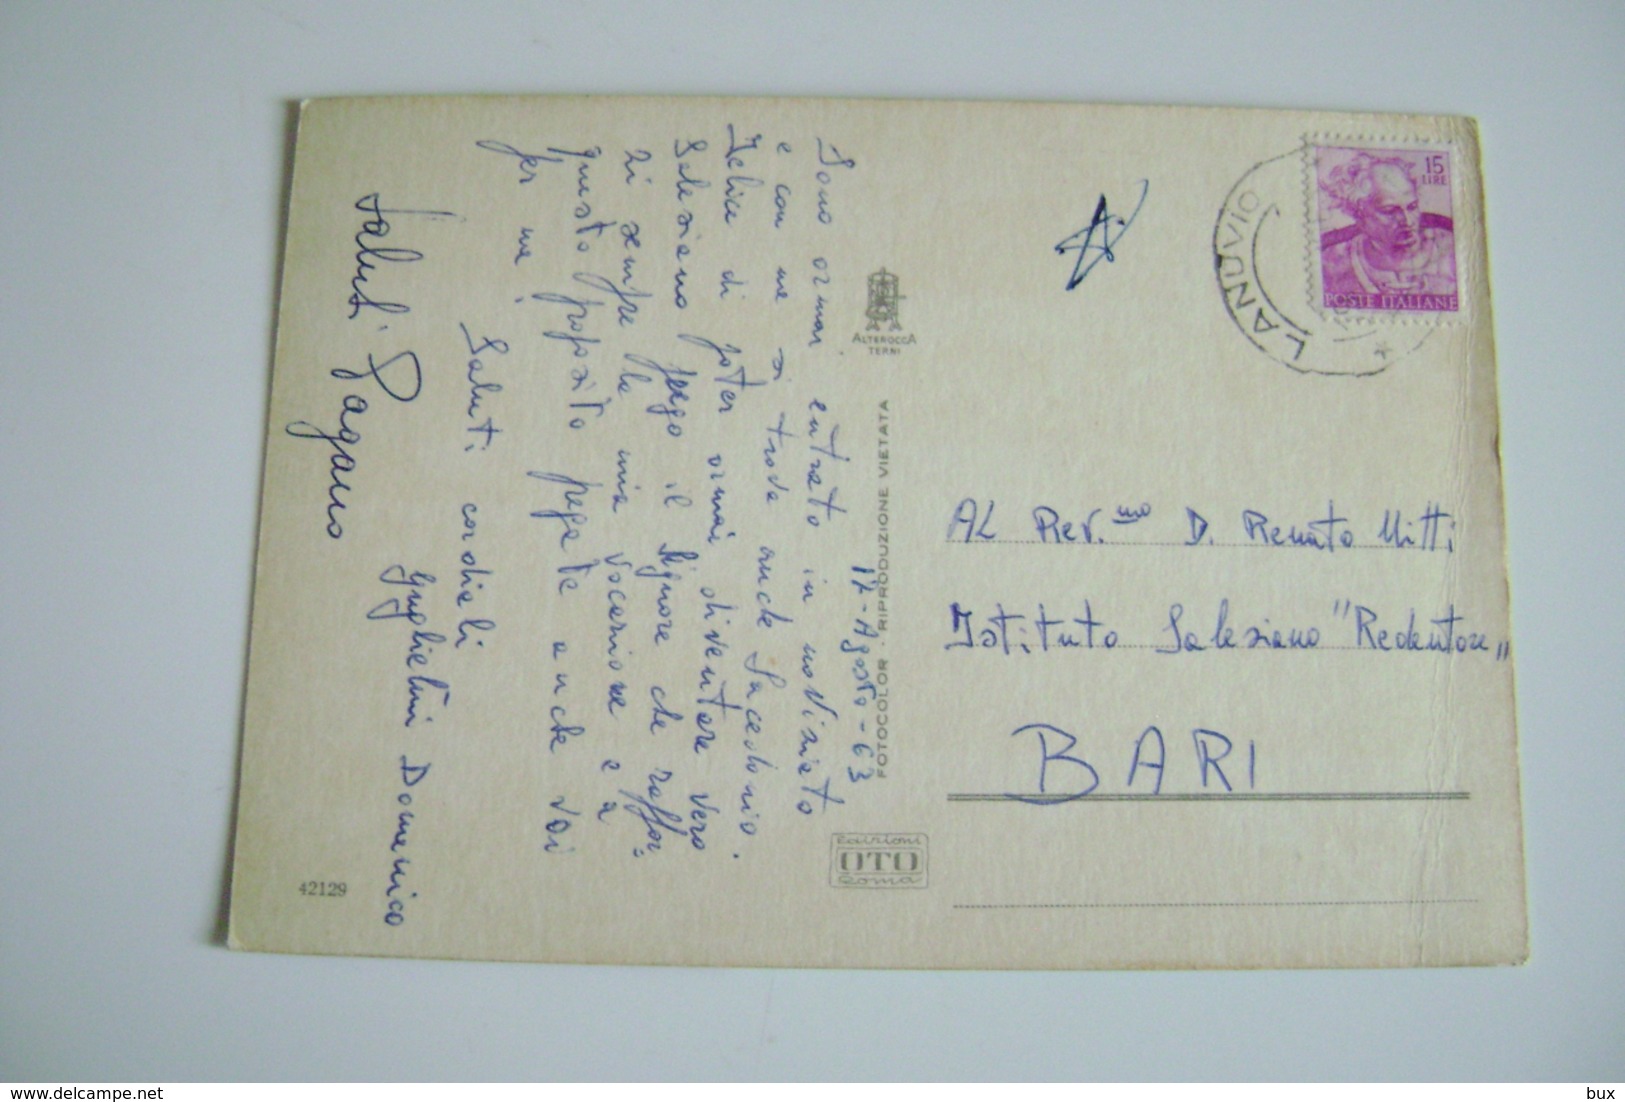 17-Agosto-63
Sono ormai entrato in noviziato
e con me si trova anche Sacedonio.
Felice di poter ormai diventare vero
Salesiano prego il Signore che raffor=
zi sempre la mia vocazione e a
questo proposito pregate anche voi
per me!
Saluti cordiali
Guglielmi Domenico
Saluti Pagano
42129
ALTEROCCA
TERNI
FOTOCOLOR · RIPRODUZIONE VIETATA
Edizioni
OTO
Roma
LANUVIO
15
LIRE
POSTE ITALIANE
AL Rev.mo D. Renato Mitti
Istituto Salesiano "Redentore"
BARI
delcampe.net
bux